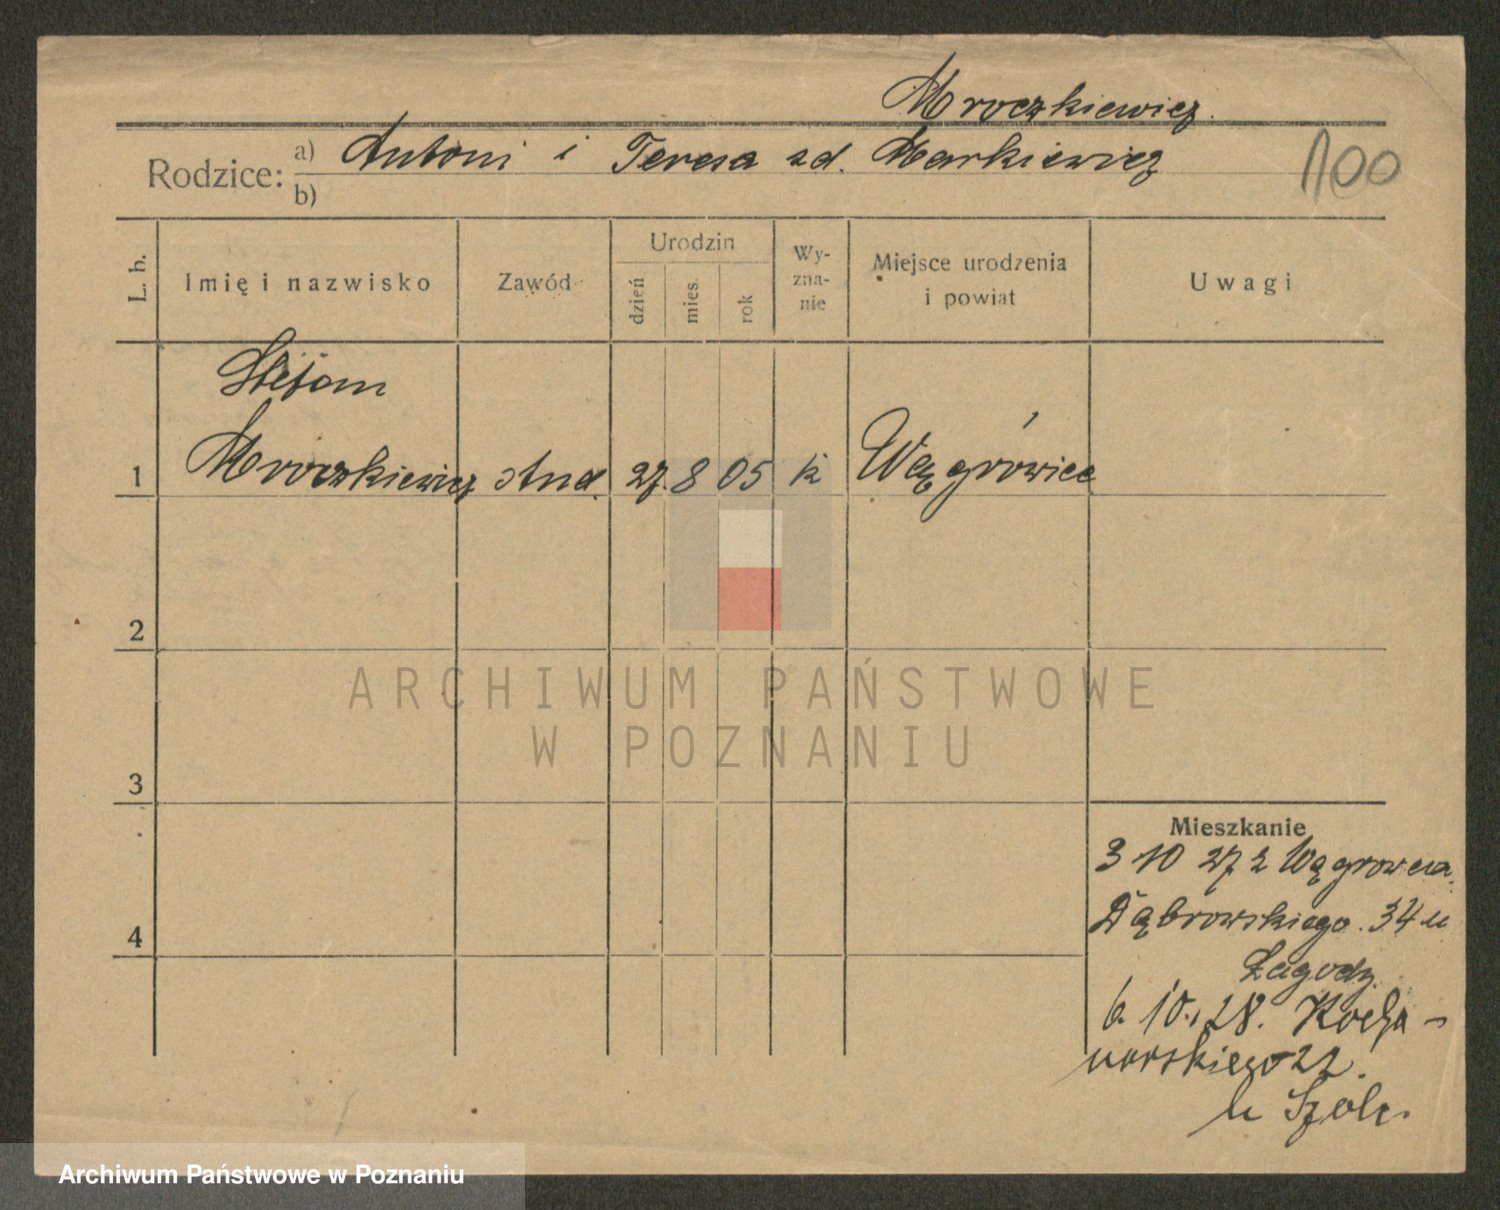 Mroczkiewicz.
Rodzice: a) Antoni i Teresa zd. Markiewicz
b)
100
L. b.
Imię i nazwisko
Zawód
Urodzin
dzień
mies.
rok
Wy-
zna-
nie
Miejsce urodzenia
i powiat
Uwagi
Stefan
1 Mroczkiewicz stud. 27. 8 05 k Wągrówiec
2
3
4
Mieszkanie
3 10 27 z Wągrowca.
Dąbrowskiego. 34 u
Łagody.
6. 10. 28. Kocha-
nowskiego 22.
u Szolc.
ARCHIWUM PAŃSTWOWE
W POZNANIU
Archiwum Państwowe w Poznaniu